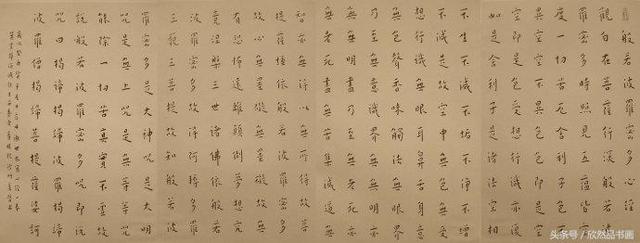 般若波羅蜜多心經
觀自在菩薩行深般若波
羅蜜多時照見五蘊皆空
度一切苦厄舍利子色不
異空空不異色色即是空
空即是色受想行識亦復
如是舍利子是諸法空相
不生不滅不垢不淨不增
不減是故空中無色無受
想行識無眼耳鼻舌身意
無色聲香味觸法無眼界
乃至無意識界無無明亦
無無明盡乃至無老死亦
無老死盡無苦集滅道無
智亦無得以無所得故菩
提薩埵依般若波羅蜜多
故心無罣礙無罣礙故無
有恐怖遠離顛倒夢想究
竟涅槃三世諸佛依般若
波羅蜜多故得阿耨多羅
三藐三菩提故知般若波
羅蜜多是大神咒是大明
咒是無上咒是無等等咒
能除一切苦真實不虛故
說般若波羅蜜多咒即說
咒曰揭諦揭諦波羅揭諦
波羅僧揭諦菩提薩婆訶
头条号 / 欣然品书画